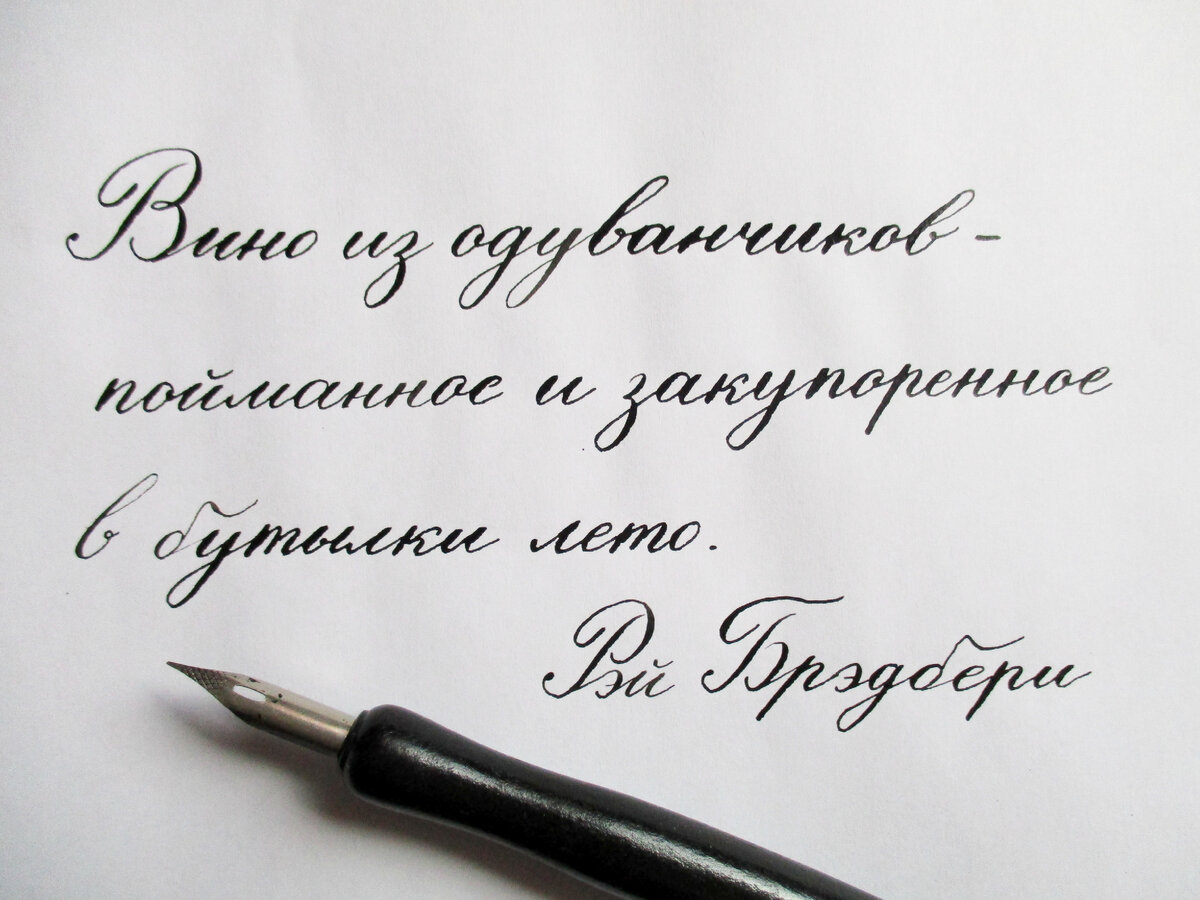 Вино из одуванчиков -
пойманное и закупоренное
в бутылки лето.
Рэй Брэдбери